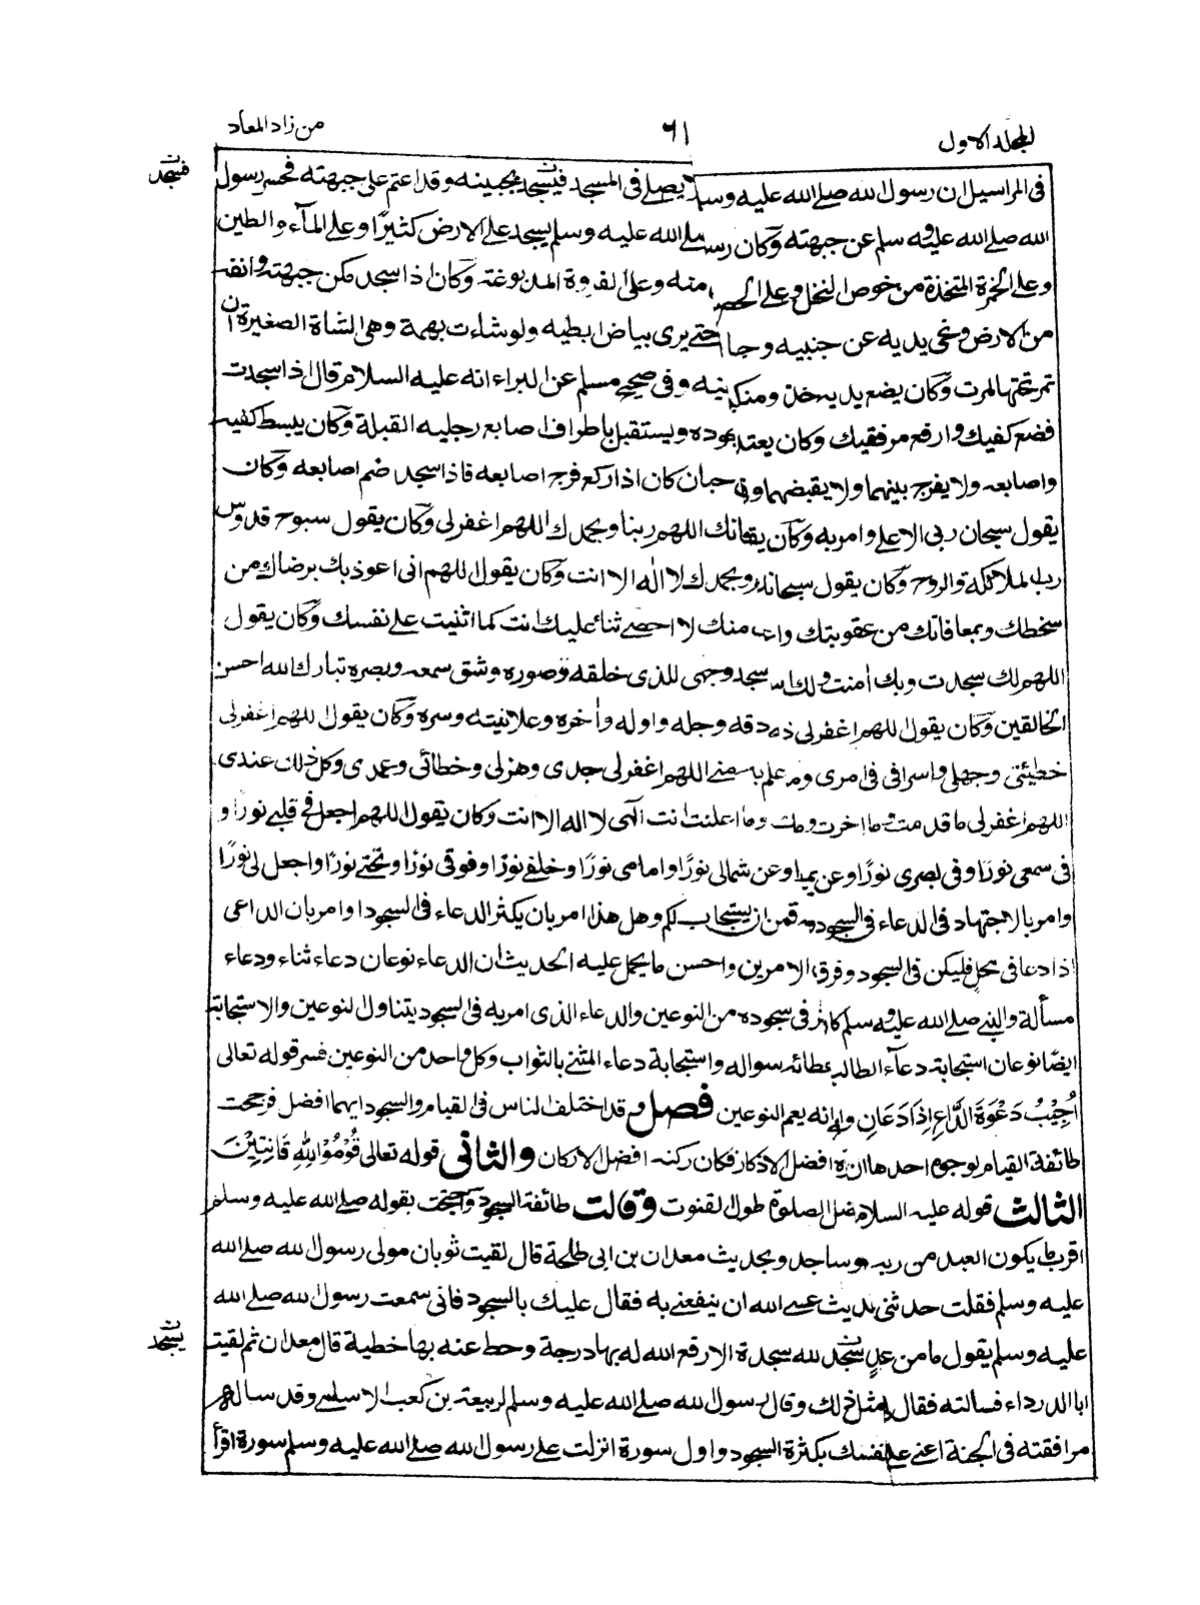 المجلد الاول
٦١
من زاد المعاد
فى المراسيل ان رسول الله صلے الله عليه وسلم يصلے فى المسجد فيسجد بجبينه وقد اعتم على جبهته فحسر رسول
فيسجد
الله صلے الله عليه وسلم عن جبهته وكان رسول صلے الله عليه وسلم يسجد على الارض كثيرًا وعلى المآء والطين
وعلى الخمرة المتخذة من خوص النخل وعلى الحصير منه وعلى الفروة المدبوغة وكان اذا سجد مكن جبهته وانفه
من الارض ونحى يديه عن جنبيه وجا حتے يرى بياض ابطيه ولو شاءت بهمة وهى الشاة الصغيرة ان
تمر تحتها لمرت وكان يضع يديه حذو ومنكبيه وفى صحيح مسلم عن البراء انه عليه السلام قال اذا سجدت
فضع كفيك وارفع مرفقيك وكان يعتد سجوده ويستقبل باطراف اصابع رجليه القبلة وكان يبسط كفيه
واصابعه ولا يفرج بينهما ولا يقبضهما وفى حبان كان اذا ركع فرج اصابعه فاذا سجد ضم اصابعه وكان
يقول سبحان ربى الاعلے وامر به وكان يقول سبحانك اللهم ربنا وبحمدك اللهم اغفر لى وكان يقول سبوح قدوس
رب الملائكة والروح وكان يقول سبحانك وبحمدك لا اله الا انت وكان يقول اللهم انى اعوذ بك برضاك من
سخطك وبمعافاتك من عقوبتك واعوذ منك لا احصے ثناء عليك انت كما اثنيت علے نفسك وكان يقول
اللهم لك سجدت وبك اٰمنت ولك سجد وجهى للذى خلقه وصوره وشق سمعه وبصره تبارك الله احسن
الخالقين وكان يقول اللهم اغفر لى دقه وجله واوله وآخره وعلانيته وسره وكان يقول اللهم اغفر لى
خطيئتى وجهلى واسرافى فى امرى وما اعلم به منے اللهم اغفر لى جدى وهزلى وخطائى وعمدى وكل ذلك عندى
اللهم اغفر لى ما قدمت وما اخرت وما وما اعلنت انت الٓهى لا اله الا انت وكان يقول اللهم اجعل فى قلبے نورًا و
فى سمعى نورًا وفى بصرى نورًا وعن يمينى وعن شمالى نورًا وامامى نورًا وخلفے نورًا وفوقى نورًا وتحتے نورًا واجعل لى نورًا
وامر بالاجتهاد فى الدعاء فى السجود قمن ان يستجاب لكم وهل هذا امر بان يكثر الدعاء فى السجود او امر بان الداعى
اذا دعا فى محل فليكن فى السجود وفرق الامرين واحسن ما يحمل عليه الحديث ان الدعاء نوعان دعاء ثناء ودعاء
مسألة والنبے صلے الله عليه وسلم كان فى سجوده من النوعين والدعاء الذى امر به فى السجود يتناول النوعين والاستجابة
ايضًا نوعان استجابة دعآء الطالب عطائه سواله واستجابة دعاء المثنے بالثواب وكل واحد من النوعين فسر قوله تعالى
اُجِيْبُ دَعْوَةَ الدَّاعِ اِذَا دَعَانِ وانه يعم النوعين فصل وقد اختلف الناس فى القيام والسجود ايهما افضل فرجحت
طائفة القيام لوجوه احدها ان ذكره افضل الاذكار فكان ركنه افضل الاركان والثانى قوله تعالى قُوْمُوْا لِلّٰهِ قَانِتِيْنَ
الثالث قوله عليه السلام افضل الصلوة طول القنوت وقالت طائفة السجود واحتجت بقوله صلے الله عليه وسلم
اقرب ما يكون العبد من ربه وهو ساجد وبحديث معدان بن ابى طلحة قال لقيت ثوبان مولى رسول الله صلے الله
عليه وسلم فقلت حدثنى بحديث عسے الله ان ينفعنے به فقال عليك بالسجود فانى سمعت رسول الله صلے الله
عليه وسلم يقول ما من عبد يسجد لله سجدة الا رفع الله له بها درجة وحط عنه بها خطية قال معدان ثم لقيت
يسجد
ابا الدرداء فسالته فقال لى مثل ذلك وقال رسول الله صلے الله عليه وسلم لربيعة بن كعب الاسلمے وقد ساله
مرافقته فى الجنة اعنے علے نفسك بكثرة السجود واول سورة انزلت علے رسول الله صلے الله عليه وسلم سورة اقرأ